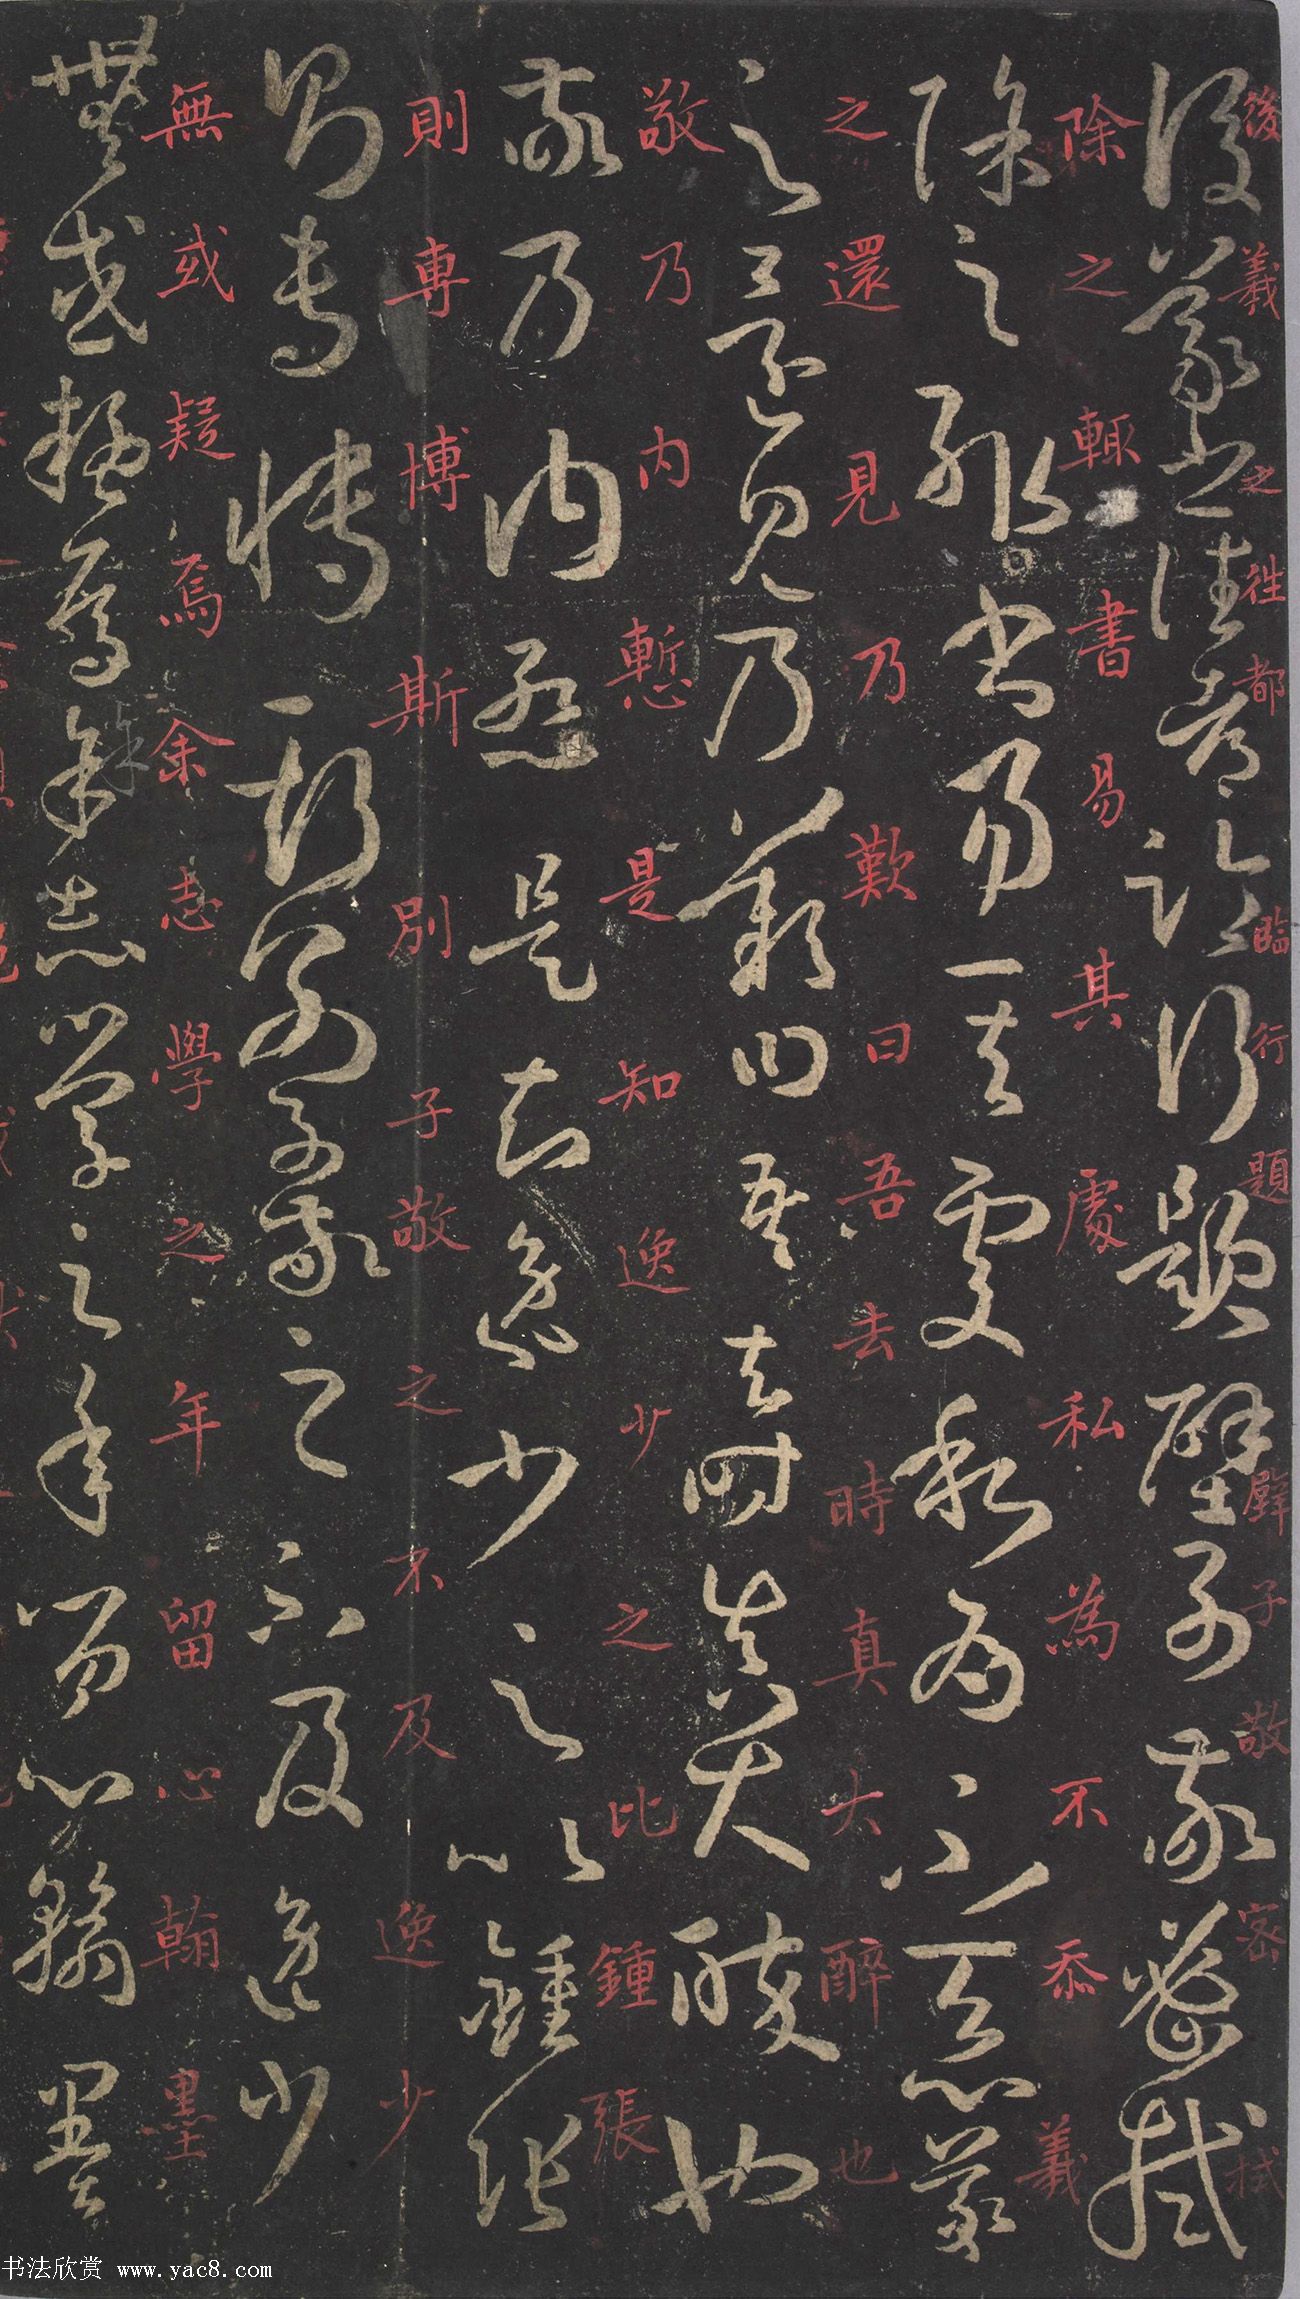 後羲之往都臨行題壁子敬密拭
除之輒書易其處私為不忝羲
之還見乃歎曰吾去時真大醉也
敬乃內慙是知逸少之比鍾張
則專博斯別子敬之不及逸少
無或疑焉余志學之年留心翰墨
书法欣赏 www.yac8.com